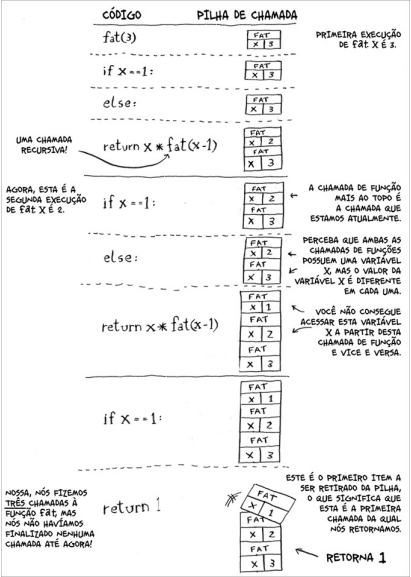 CÓDIGO PILHA DE CHAMADA
fat(3)
FAT
X 3
PRIMEIRA EXECUÇÃO
DE fat X É 3.
if x==1:
FAT
X 3
else:
FAT
X 3
UMA CHAMADA
RECURSIVA!
return x*fat(x-1)
FAT
X 2
FAT
X 3
AGORA, ESTA É A
SEGUNDA EXECUÇÃO
DE fat X É 2.
if x==1:
FAT
X 2
FAT
X 3
A CHAMADA DE FUNÇÃO
MAIS AO TOPO É
A CHAMADA QUE
ESTAMOS ATUALMENTE.
else:
FAT
X 2
FAT
X 3
PERCEBA QUE AMBAS AS
CHAMADAS DE FUNÇÕES
POSSUEM UMA VARIÁVEL
X, MAS O VALOR DA
VARIÁVEL X É DIFERENTE
EM CADA UMA.
return x*fat(x-1)
FAT
X 1
FAT
X 2
FAT
X 3
VOCÊ NÃO CONSEGUE
ACESSAR ESTA VARIÁVEL
X A PARTIR DESTA
CHAMADA DE FUNÇÃO
E VICE E VERSA.
if x==1:
FAT
X 1
FAT
X 2
FAT
X 3
NOSSA, NÓS FIZEMOS
TRÊS CHAMADAS À
FUNÇÃO fat, MAS
NÓS NÃO HAVÍAMOS
FINALIZADO NENHUMA
CHAMADA ATÉ AGORA!
return 1
FAT
X 1
FAT
X 2
FAT
X 3
ESTE É O PRIMEIRO ITEM A
SER RETIRADO DA PILHA,
O QUE SIGNIFICA QUE
ESTA É A PRIMEIRA
CHAMADA DA QUAL
NÓS RETORNAMOS.
RETORNA 1